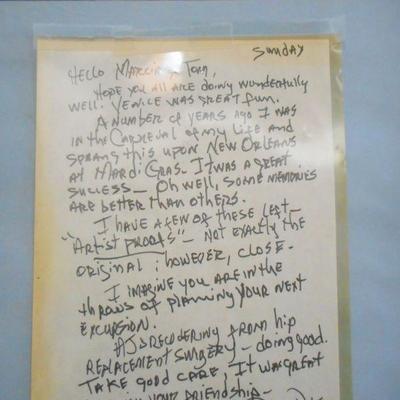 Sunday
Hello Marcia & Tom,
Hope you all are doing wonderfully
well. Venice was great fun.
A number of years ago I was
in the Carneval of my life and
sprang this upon New Orleans
at Mardi Gras. It was a great
success — Oh well, some memories
are better than others.
I have a few of these left —
"Artist proofs" — not exactly the
original; however, close.
I imagine you are in the
throws of planning your next
excursion.
AJ's recovering from hip
replacement surgery — doing good.
Take good care. It was great
your friendship —